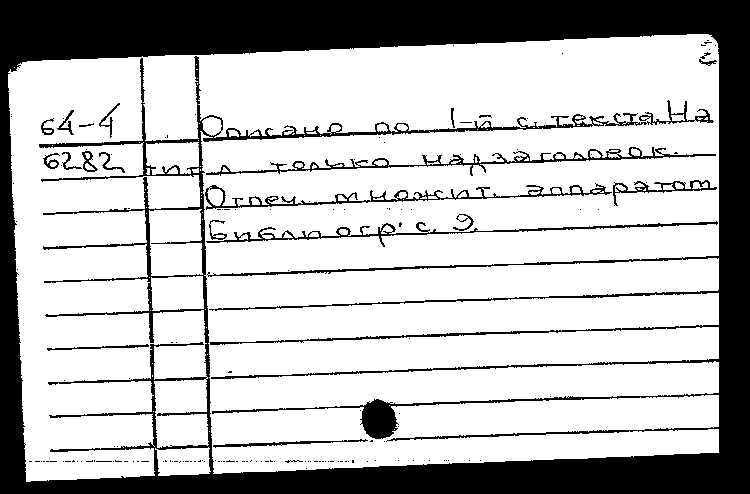 64-4 Описано по 1-й с. текста. На
6282 тит. л только надзаголовок.
Отпеч. множит. аппаратом
Библиогр: с. 9.